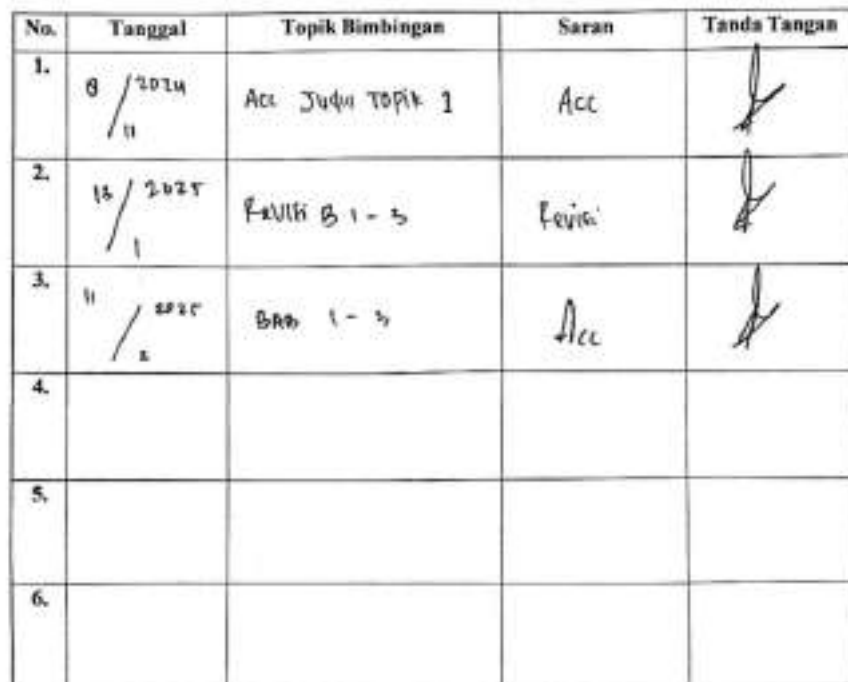 No. Tanggal Topik Bimbingan Saran Tanda Tangan
1. 8 / 2024 / 11 Acc Judul Topik 1 Acc
2. 13 / 2025 / 1 Revisi B 1 - 3 Revisi
3. 11 / 2025 / 2 BAB 1 - 3 Acc
4.
5.
6.